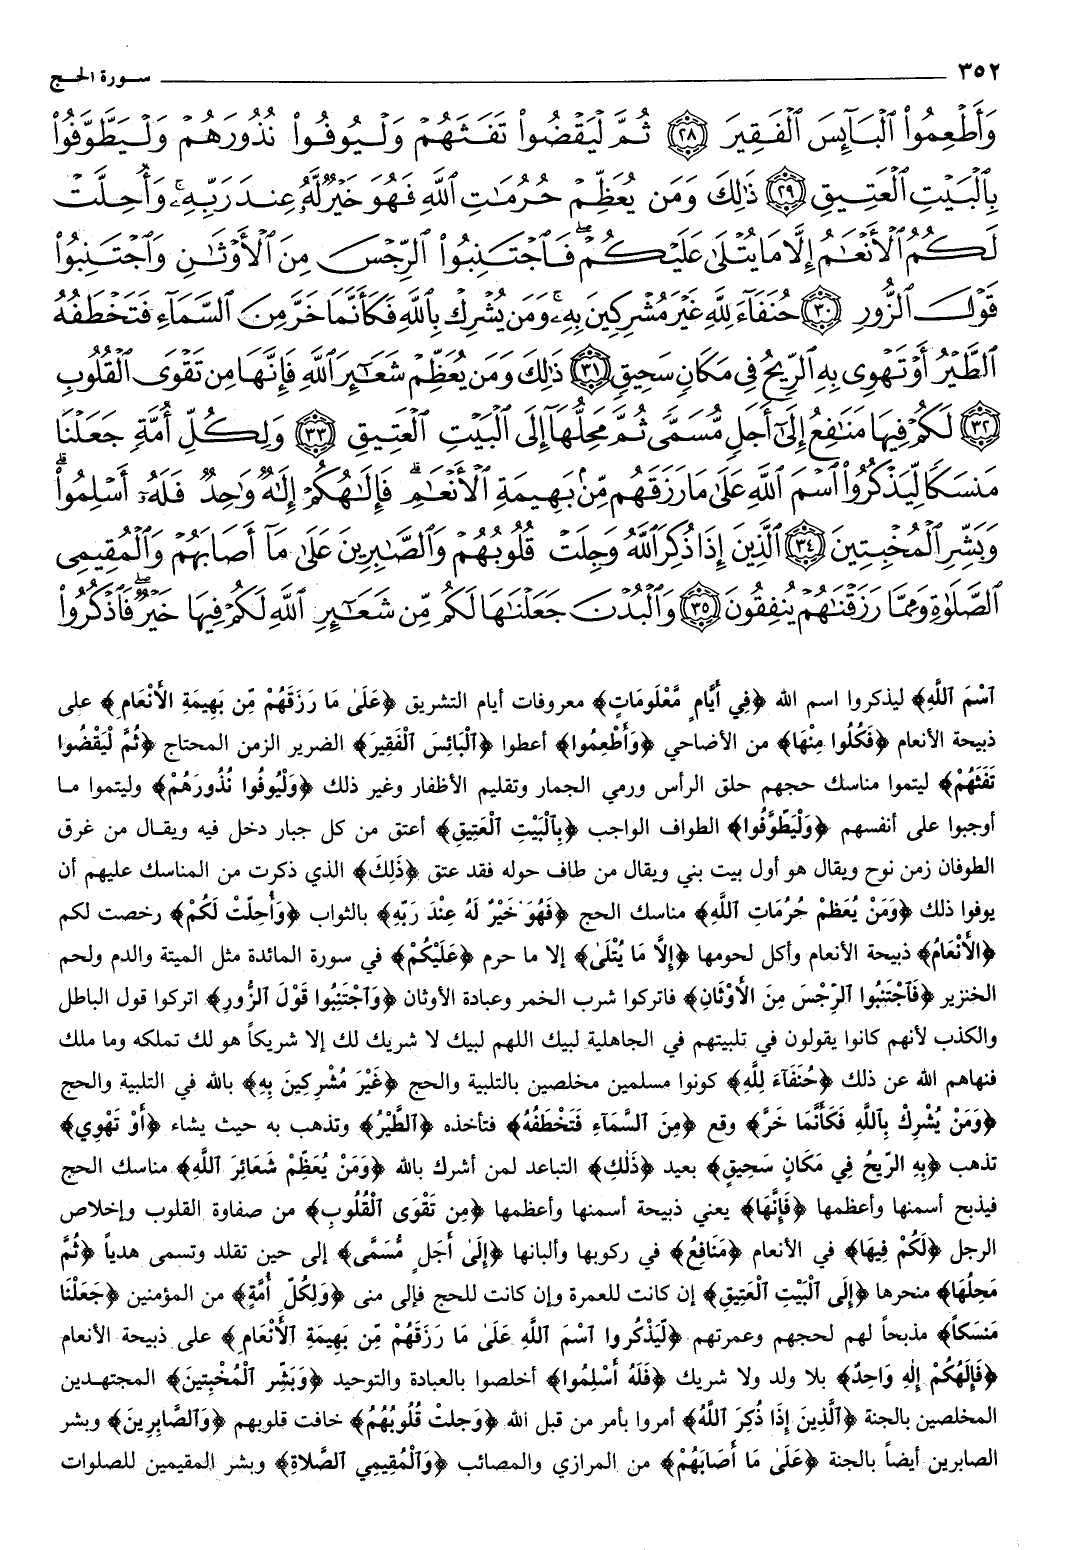 ٣٥٢ سورة الحج
وَأَطْعِمُوا۟ ٱلْبَآئِسَ ٱلْفَقِيرَ ﴿٢٨﴾ ثُمَّ لْيَقْضُوا۟ تَفَثَهُمْ وَلْيُوفُوا۟ نُذُورَهُمْ وَلْيَطَّوَّفُوا۟
بِٱلْبَيْتِ ٱلْعَتِيقِ ﴿٢٩﴾ ذَٰلِكَ وَمَن يُعَظِّمْ حُرُمَٰتِ ٱللَّهِ فَهُوَ خَيْرٌ لَّهُۥ عِندَ رَبِّهِۦ ۗ وَأُحِلَّتْ
لَكُمُ ٱلْأَنْعَٰمُ إِلَّا مَا يُتْلَىٰ عَلَيْكُمْ ۖ فَٱجْتَنِبُوا۟ ٱلرِّجْسَ مِنَ ٱلْأَوْثَٰنِ وَٱجْتَنِبُوا۟
قَوْلَ ٱلزُّورِ ﴿٣٠﴾ حُنَفَآءَ لِلَّهِ غَيْرَ مُشْرِكِينَ بِهِۦ ۚ وَمَن يُشْرِكْ بِٱللَّهِ فَكَأَنَّمَا خَرَّ مِنَ ٱلسَّمَآءِ فَتَخْطَفُهُ
ٱلطَّيْرُ أَوْ تَهْوِى بِهِ ٱلرِّيحُ فِى مَكَانٍ سَحِيقٍ ﴿٣١﴾ ذَٰلِكَ وَمَن يُعَظِّمْ شَعَٰٓئِرَ ٱللَّهِ فَإِنَّهَا مِن تَقْوَى ٱلْقُلُوبِ
﴿٣٢﴾ لَكُمْ فِيهَا مَنَٰفِعُ إِلَىٰٓ أَجَلٍ مُّسَمًّى ثُمَّ مَحِلُّهَآ إِلَى ٱلْبَيْتِ ٱلْعَتِيقِ ﴿٣٣﴾ وَلِكُلِّ أُمَّةٍ جَعَلْنَا
مَنسَكًا لِّيَذْكُرُوا۟ ٱسْمَ ٱللَّهِ عَلَىٰ مَا رَزَقَهُم مِّنۢ بَهِيمَةِ ٱلْأَنْعَٰمِ ۗ فَإِلَٰهُكُمْ إِلَٰهٌ وَٰحِدٌ فَلَهُۥٓ أَسْلِمُوا۟ ۗ
وَبَشِّرِ ٱلْمُخْبِتِينَ ﴿٣٤﴾ ٱلَّذِينَ إِذَا ذُكِرَ ٱللَّهُ وَجِلَتْ قُلُوبُهُمْ وَٱلصَّٰبِرِينَ عَلَىٰ مَآ أَصَابَهُمْ وَٱلْمُقِيمِى
ٱلصَّلَوٰةِ وَمِمَّا رَزَقْنَٰهُمْ يُنفِقُونَ ﴿٣٥﴾ وَٱلْبُدْنَ جَعَلْنَٰهَا لَكُم مِّن شَعَٰٓئِرِ ٱللَّهِ لَكُمْ فِيهَا خَيْرٌ ۖ فَٱذْكُرُوا۟
ٱسْمَ ٱللَّهِ﴾ ليذكروا اسم الله ﴿فِي أَيَّامٍ مَّعْلُومَاتٍ﴾ معروفات أيام التشريق ﴿عَلَىٰ مَا رَزَقَهُمْ مِّن بَهِيمَةِ الأَنْعَامِ﴾ على
ذبيحة الأنعام ﴿فَكُلُوا مِنْهَا﴾ من الأضاحي ﴿وَأَطْعِمُوا﴾ أعطوا ﴿ٱلْبَائِسَ ٱلْفَقِيرَ﴾ الضرير الزمن المحتاج ﴿ثُمَّ لْيَقْضُوا
تَفَثَهُمْ﴾ ليتموا مناسك حجهم حلق الرأس ورمي الجمار وتقليم الأظفار وغير ذلك ﴿وَلْيُوفُوا نُذُورَهُمْ﴾ وليتموا ما
أوجبوا على أنفسهم ﴿وَلْيَطَّوَّفُوا﴾ الطواف الواجب ﴿بِٱلْبَيْتِ ٱلْعَتِيقِ﴾ أعتق من كل جبار دخل فيه ويقال من غرق
الطوفان زمن نوح ويقال هو أول بيت بني ويقال من طاف حوله فقد عتق ﴿ذَلِكَ﴾ الذي ذكرت من المناسك عليهم أن
يوفوا ذلك ﴿وَمَنْ يُعَظِّمْ حُرُمَاتِ ٱللَّهِ﴾ مناسك الحج ﴿فَهُوَ خَيْرٌ لَهُ عِنْدَ رَبِّهِ﴾ بالثواب ﴿وَأُحِلَّتْ لَكُمْ﴾ رخصت لكم
﴿الأَنْعَامُ﴾ ذبيحة الأنعام وأكل لحومها ﴿إِلَّا مَا يُتْلَىٰ﴾ إلا ما حرم ﴿عَلَيْكُمْ﴾ في سورة المائدة مثل الميتة والدم ولحم
الخنزير ﴿فَٱجْتَنِبُوا ٱلرِّجْسَ مِنَ ٱلأَوْثَانِ﴾ فاتركوا شرب الخمر وعبادة الأوثان ﴿وَٱجْتَنِبُوا قَوْلَ ٱلزُّورِ﴾ اتركوا قول الباطل
والكذب لأنهم كانوا يقولون في تلبيتهم في الجاهلية لبيك اللهم لبيك لا شريك لك إلا شريكاً هو لك تملكه وما ملك
فنهاهم الله عن ذلك ﴿حُنَفَآءَ لِلَّهِ﴾ كونوا مسلمين مخلصين بالتلبية والحج ﴿غَيْرَ مُشْرِكِينَ بِهِ﴾ بالله في التلبية والحج
﴿وَمَنْ يُشْرِكْ بِٱللَّهِ فَكَأَنَّمَا خَرَّ﴾ وقع ﴿مِنَ ٱلسَّمَاءِ فَتَخْطَفُهُ﴾ فتأخذه ﴿ٱلطَّيْرُ﴾ وتذهب به حيث يشاء ﴿أَوْ تَهْوِي﴾
تذهب ﴿بِهِ الرِّيحُ فِي مَكَانٍ سَحِيقٍ﴾ بعيد ﴿ذَٰلِكَ﴾ التباعد لمن أشرك بالله ﴿وَمَنْ يُعَظِّمْ شَعَائِرَ ٱللَّهِ﴾ مناسك الحج
فيذبح أسمنها وأعظمها ﴿فَإِنَّهَا﴾ يعني ذبيحة أسمنها وأعظمها ﴿مِن تَقْوَى ٱلْقُلُوبِ﴾ من صفاوة القلوب وإخلاص
الرجل ﴿لَكُمْ فِيهَا﴾ في الأنعام ﴿مَنَافِعُ﴾ في ركوبها وألبانها ﴿إِلَىٰ أَجَلٍ مُّسَمًّى﴾ إلى حين تقلد وتسمى هدياً ﴿ثُمَّ
مَحِلُّهَا﴾ منحرها ﴿إِلَى ٱلْبَيْتِ ٱلْعَتِيقِ﴾ إن كانت للعمرة وإن كانت للحج فإلى منى ﴿وَلِكُلِّ أُمَّةٍ﴾ من المؤمنين ﴿جَعَلْنَا
مَنسَكاً﴾ مذبحاً لهم لحجهم وعمرتهم ﴿لِّيَذْكُرُوا ٱسْمَ ٱللَّهِ عَلَىٰ مَا رَزَقَهُمْ مِّن بَهِيمَةِ ٱلأَنْعَامِ﴾ على ذبيحة الأنعام
﴿فَإِلَهُكُمْ إِلَهٌ وَاحِدٌ﴾ بلا ولد ولا شريك ﴿فَلَهُ أَسْلِمُوا﴾ أخلصوا بالعبادة والتوحيد ﴿وَبَشِّرِ ٱلْمُخْبِتِينَ﴾ المجتهدين
المخلصين بالجنة ﴿ٱلَّذِينَ إِذَا ذُكِرَ ٱللَّهُ﴾ أمروا بأمر من قبل الله ﴿وَجِلَتْ قُلُوبُهُمْ﴾ خافت قلوبهم ﴿وَٱلصَّابِرِينَ﴾ وبشر
الصابرين أيضاً بالجنة ﴿عَلَىٰ مَا أَصَابَهُمْ﴾ من المرازي والمصائب ﴿وَٱلْمُقِيمِي ٱلصَّلاَةِ﴾ وبشر المقيمين للصلوات